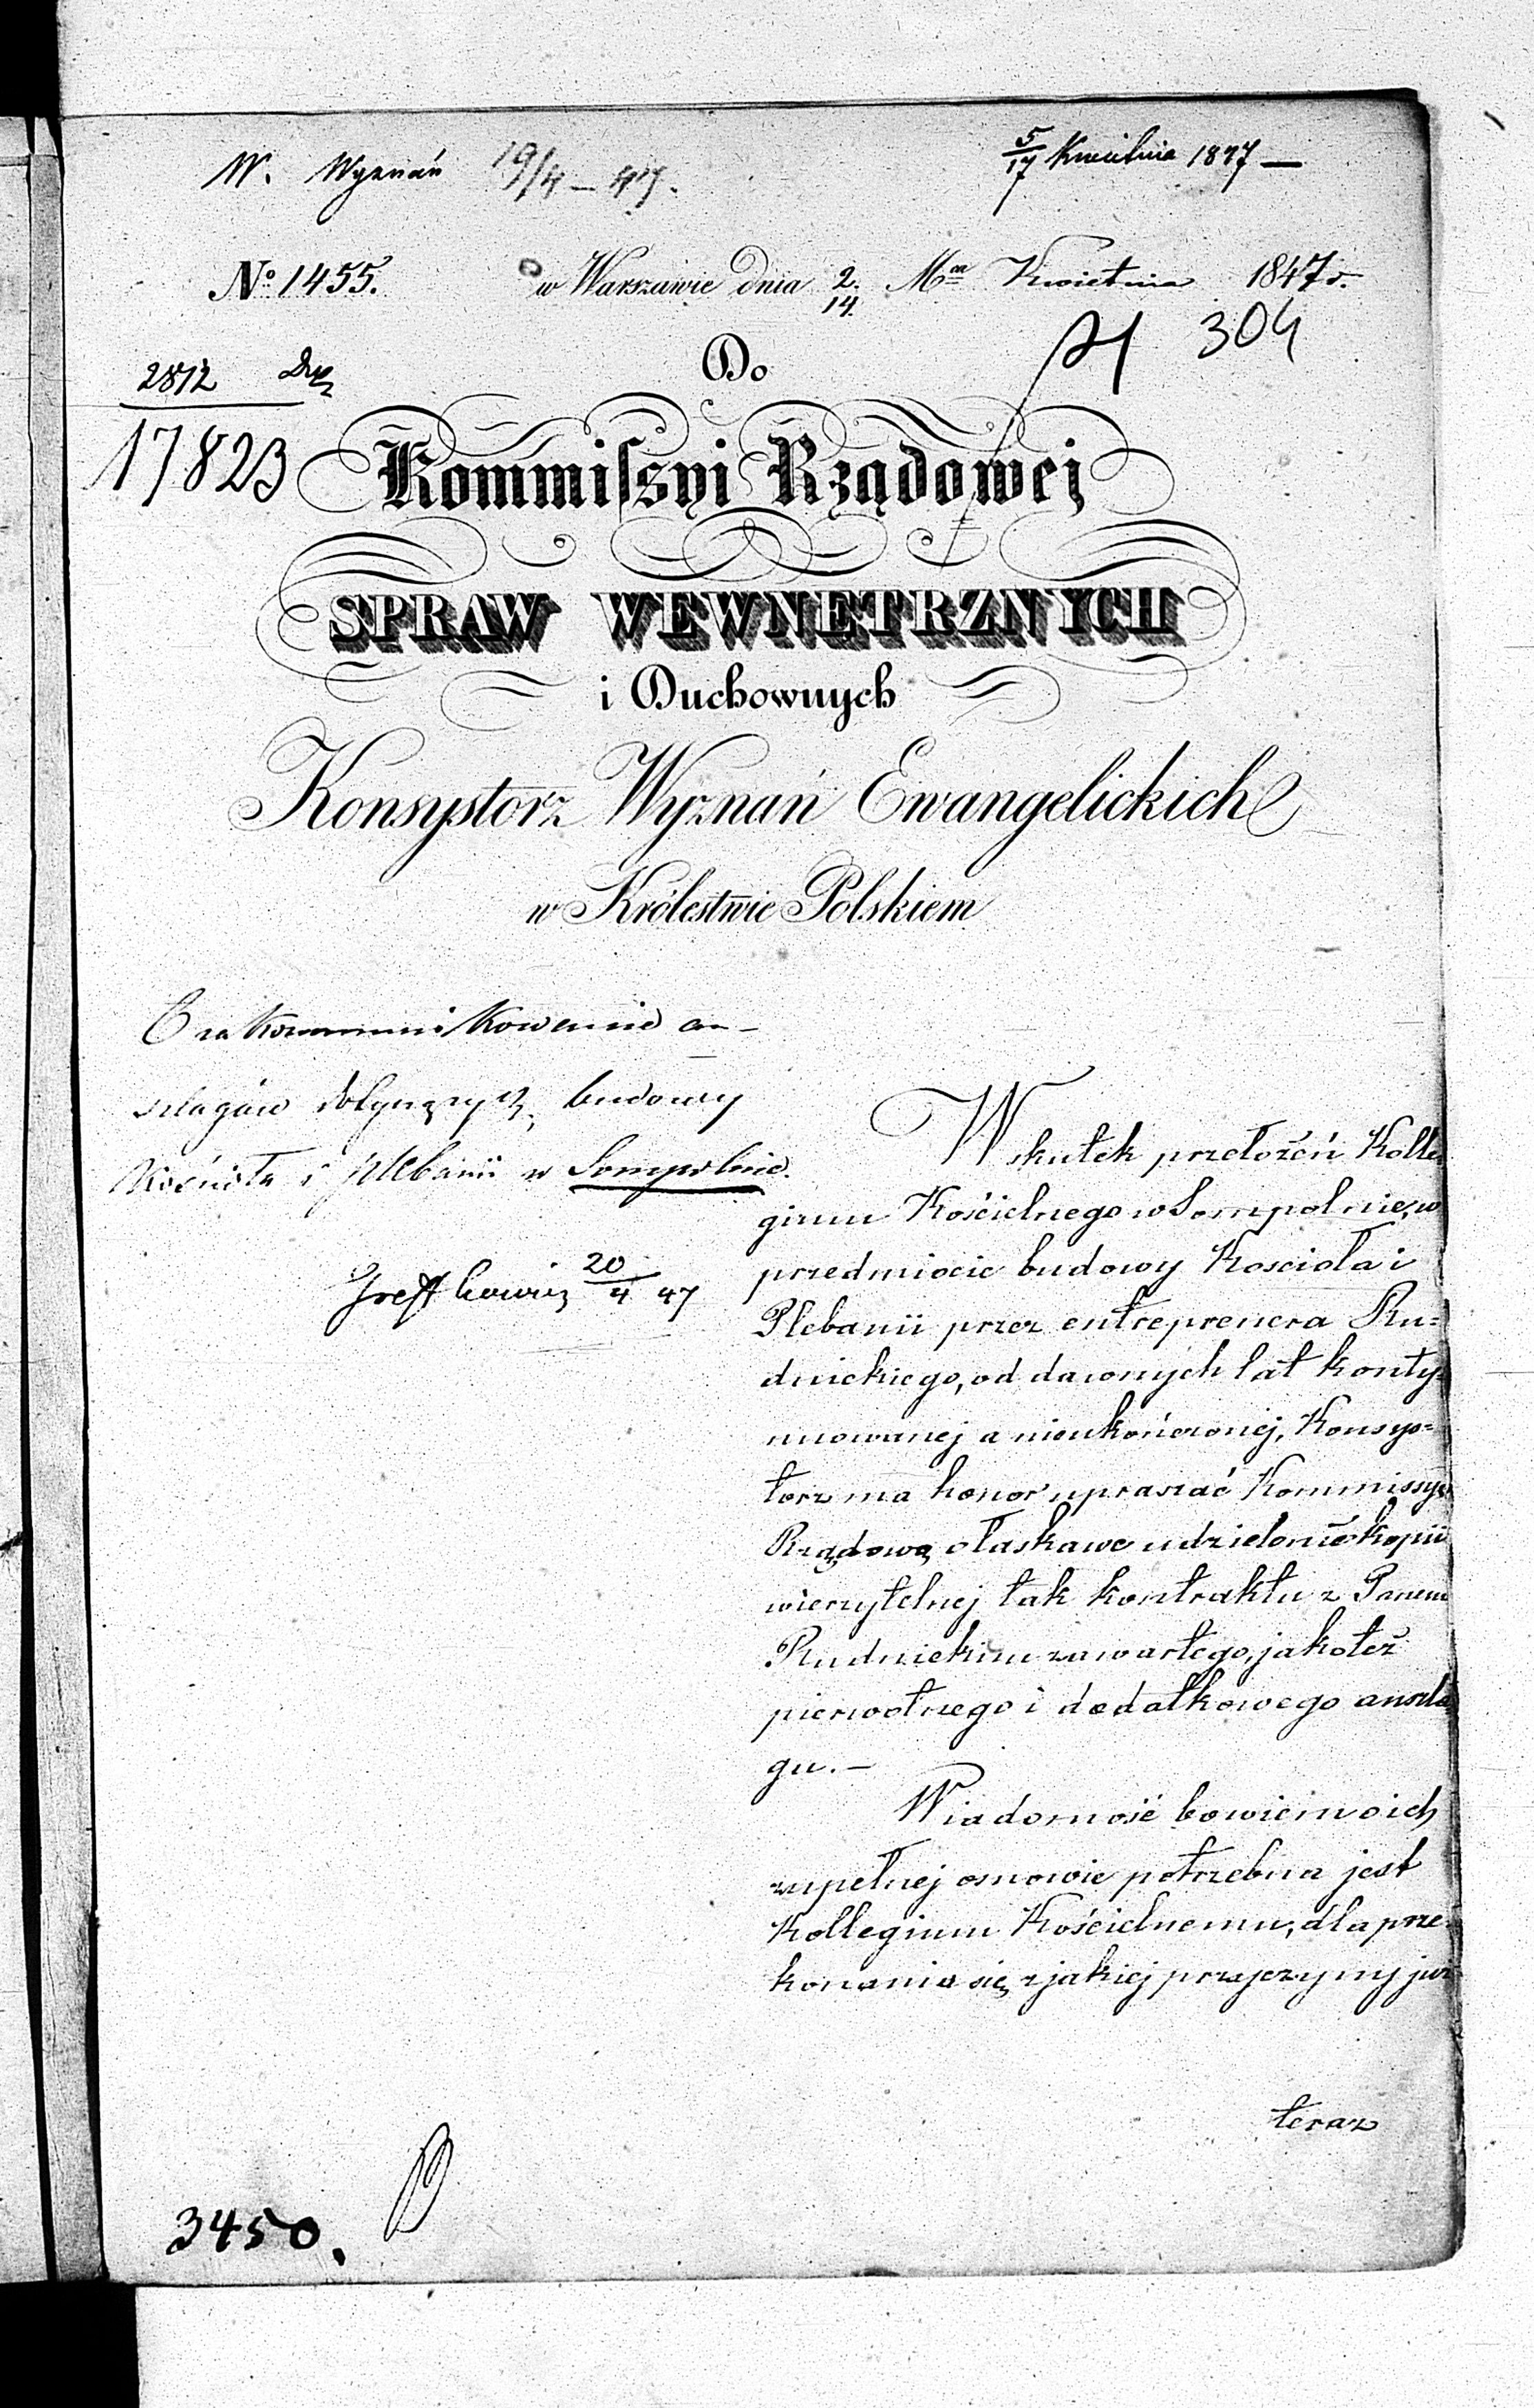 W. Wyznań 19/4 – 47.
5/17 Kwietnia 1847 —
No 1455. w Warszawie dnia 2/14 Mca Kwietnia 1847 r.
304
2812
17823
Do
Kommissyi Rządowej
SPRAW WEWNETRZNYCH
i Duchownych
Konsystorz Wyznań Ewangelickich
w Królestwie Polskiem
O zakommunikowanie an-
szlagów dotyczących budowy
Kościoła i Plebanii w Sompolnie.
20/4 47
W skutek przełożeń Kolle
gium Kościelnego w Sompolnie, w
przedmiocie budowy Kościoła i
Plebanii przez entreprenera Ru=
dnickiego, od dawnych lat konty=
nuowanej a nieukończonej, Konsys=
torz ma honor upraszać Kommissyę
Rządową o łaskawe udzielenie kopii
wierzytelnej tak kontraktu z Panem
Rudnickim zawartego, jakoteż
pierwotnego i dodatkowego anszla
gu. —
Wiadomość bowiem o ich
zupełnej osnowie potrzebna jest
Kollegium Kościelnemu, dla prze=
konania się z jakiej przyczyny już
teraz
3450.